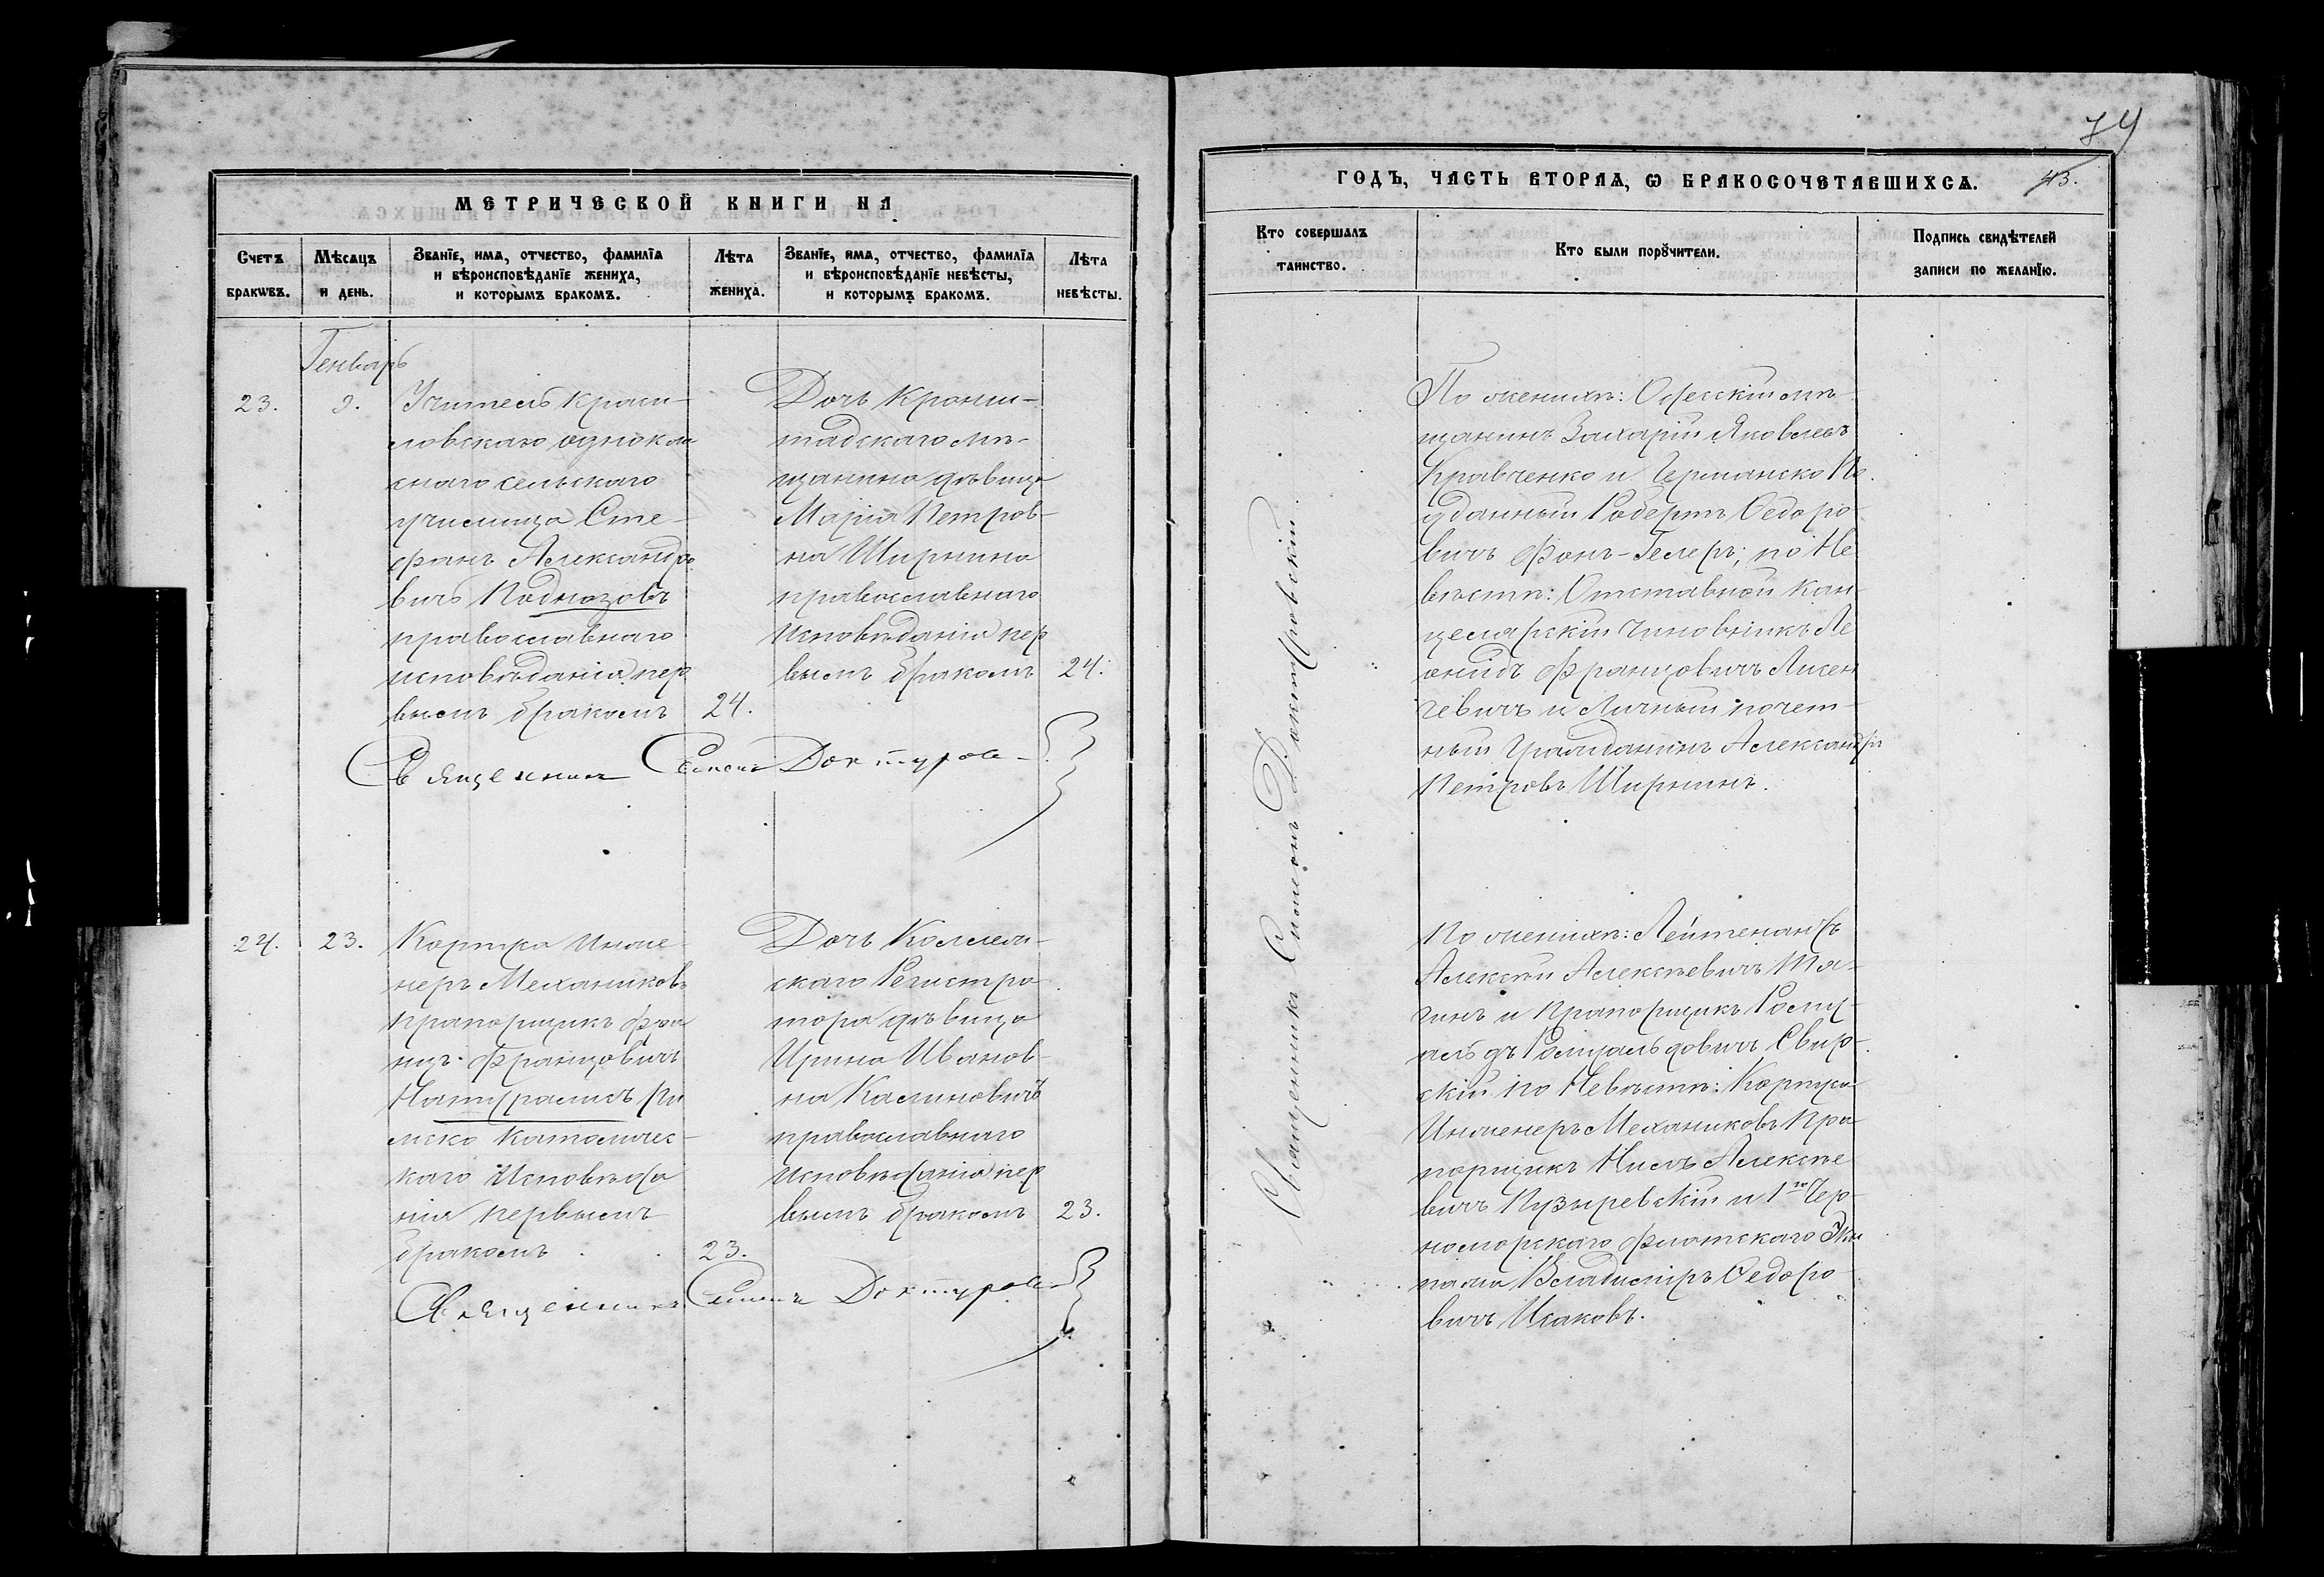 МЕТРИЧЕСКОЙ КНИГИ НА
Счетъ браковъ.
Мѣсяцъ и день.
Званїе, имя, отчество, фамилїя
и вѣроисповѣданїе жениха,
и которымъ бракомъ.
Лѣта жениха.
Званїе, имя, отчество, фамилїя
и вѣроисповѣданїе невѣсты,
и которымъ бракомъ.
Лѣта невѣсты.
Генварь
23.
9.
Учитель Краси-
ловскаго однокла
снаго сельскаго
училища Сте-
фанъ Александро
вичъ Поднозовъ
православнаго
исповѣданія пер
вымъ бракомъ
24.
Дочь Кронш-
тадскаго мѣ-
щанина дѣвица
Марія Петров-
на Ширнина
православнаго
исповѣданія пер
вымъ бракомъ
24.
Священникъ Симеонъ Доктуров
24.
23.
Корпуса Инже-
неръ Механиковъ
Прапорщикъ Фра
нцъ Францовичъ
Натурасисъ Ри
мско Католичес-
каго Исповѣда
нія первымъ
бракомъ
23.
Дочь Коллеж-
скаго Регистра-
тора дѣвица
Ирина Иванов-
на Калиновичъ
православнаго
исповѣданія пер
вымъ бракомъ
23.
Священникъ Симеонъ Доктуров
74
ГОДЪ, ЧАСТЬ ВТОРАЯ, Ѡ БРАКОСОЧЕТАВШИХСЯ.
43.
Кто совершалъ
таинство.
Кто были порꙋчители.
Подпись свидѣтелей
записи по желанїю.
Священникъ Симеонъ
По женихѣ: Одесскій мѣ-
щанинъ Захарій Яковлевъ
Кравченко и Германско По
дданный Робертъ Ѳедоро-
вичъ Фонъ-Гелеръ; по Не
вѣстѣ: Отставной Кан-
целярскій Чиновникъ Ле
онидъ Францовичъ Лисен
чевичъ и Личный почет-
ный Гражданинъ Александръ
Петровъ Ширнинъ.
По женихѣ: Лейтенантъ
Алексѣй Алексѣевичъ Тя-
гинъ и Прапорщикъ Рому-
альдъ Ромуальдовичъ Свир-
скій по Невѣстѣ: Корпуса
Инженеръ Механиковъ Пра
порщикъ Нилъ Алексѣе
вичъ Пузыревскій и 1го Чер-
номорскаго Флотскаго Эки
пажа Владиміръ Ѳедоро-
вичъ Исаковъ.